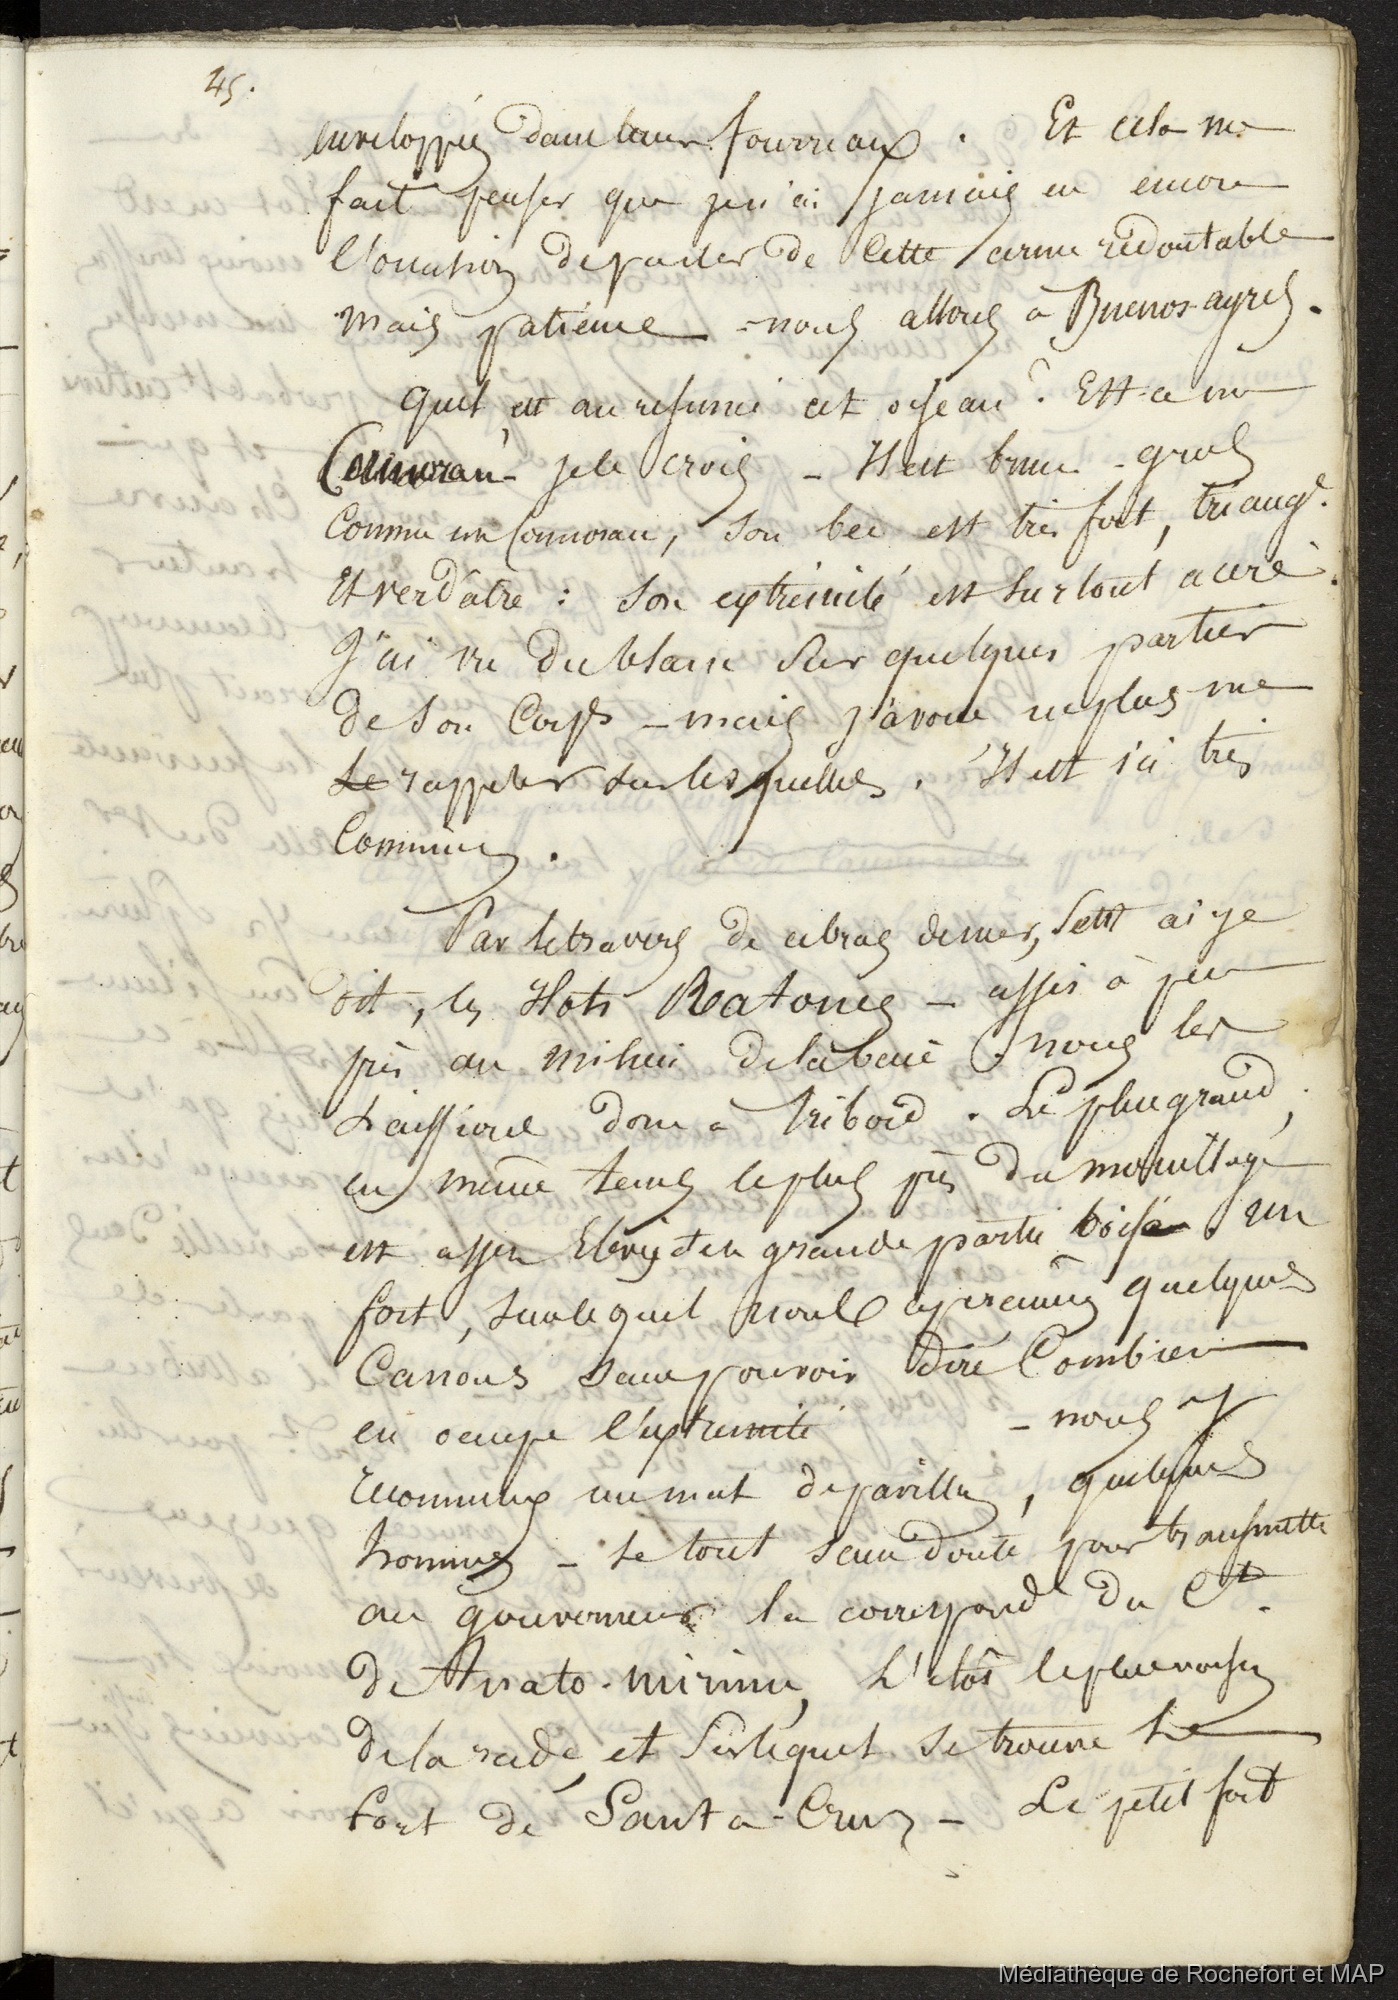 45.
enveloppées dans leurs fourreaux. Et cela me
fait penser que je n'ai jamais eu encore
l'occasion de parler de cette arme redoutable
mais patience - nous allons à Buenos-ayres.
Quel est au résumé cet oiseau? Est-ce un
Cormoran - je le crois - Il est brun - gros
comme un Cormoran, son bec est très fort, triangre.
et verdâtre : son extrémité est surtout acéré.
J'ai vu du blanc sur quelques parties
de son corps - mais j'avoue ne plus me
le rappeler sur lesquelles. Il est ici très
commun.
Par le travers de ce bras de mer, sont ai je
dit, les Ilots Ratones - assis à peu
près au milieu de la baie. Nous les
laissions donc à tribord. Le plus grand,
en même tems le plus près du mouillage
est assez élevé et en grande partie boisé. Un
fort, sur lequel nous aperçumes quelques
Canons sans pouvoir dire combien
en occupe l'extrémité - nous y
reconnumes un mat de pavillon, quelques
hommes - le tout sans doute pour transmettre
au gouverneur la correspondce du Ct.
de Anato-mirim, L'ilot le plus voisin
de la rade, et sur lequel se trouve le
fort de Santa-Cruz - Le petit fort
Médiathèque de Rochefort et MAP